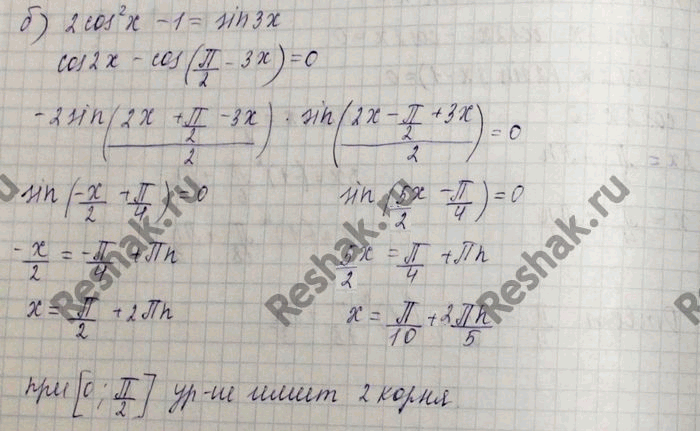 б) 2cos²x - 1 = sin3x
cos2x - cos(π/2 - 3x) = 0
-2sin((2x + π/2 - 3x)/2) · sin((2x - π/2 + 3x)/2) = 0
sin(-x/2 + π/4) = 0 sin(5x/2 - π/4) = 0
-x/2 = -π/4 + πn 5/2 x = π/4 + πn
x = π/2 + 2πn x = π/10 + 2πn/5
при [0; π/2] ур-ие имеет 2 корня.
Reshak.ru
Reshak.ru
Reshak.ru